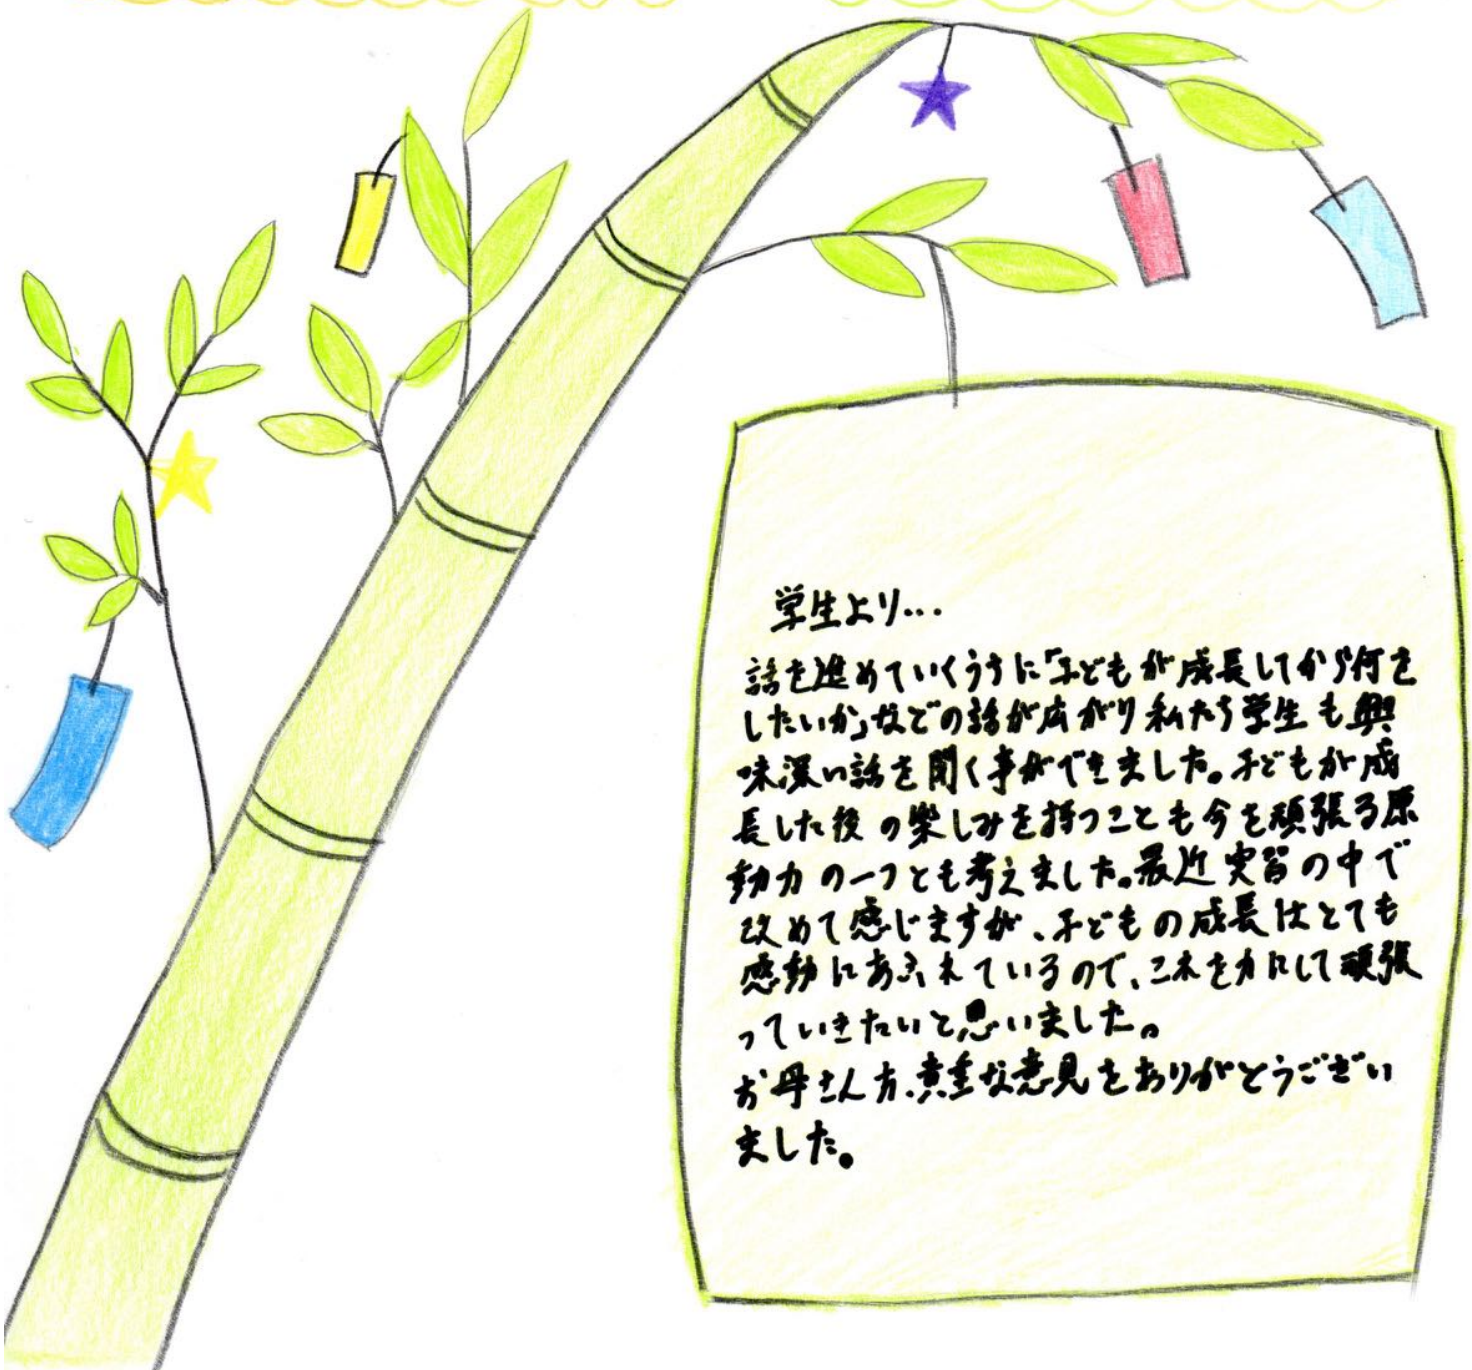 学生より...
話を進めていくうちに「子どもが成長してから何を
したいか」などの話が広がり私たち学生も興
味深い話を聞く事ができました。子どもが成
長した後の楽しみを持つことも今を頑張る原
動力の一つとも考えました。最近実習の中で
改めて感じますが、子どもの成長はとても
感動にあふれているので、これを力にして頑張
っていきたいと思いました。
お母さん方、貴重な意見をありがとうござい
ました。